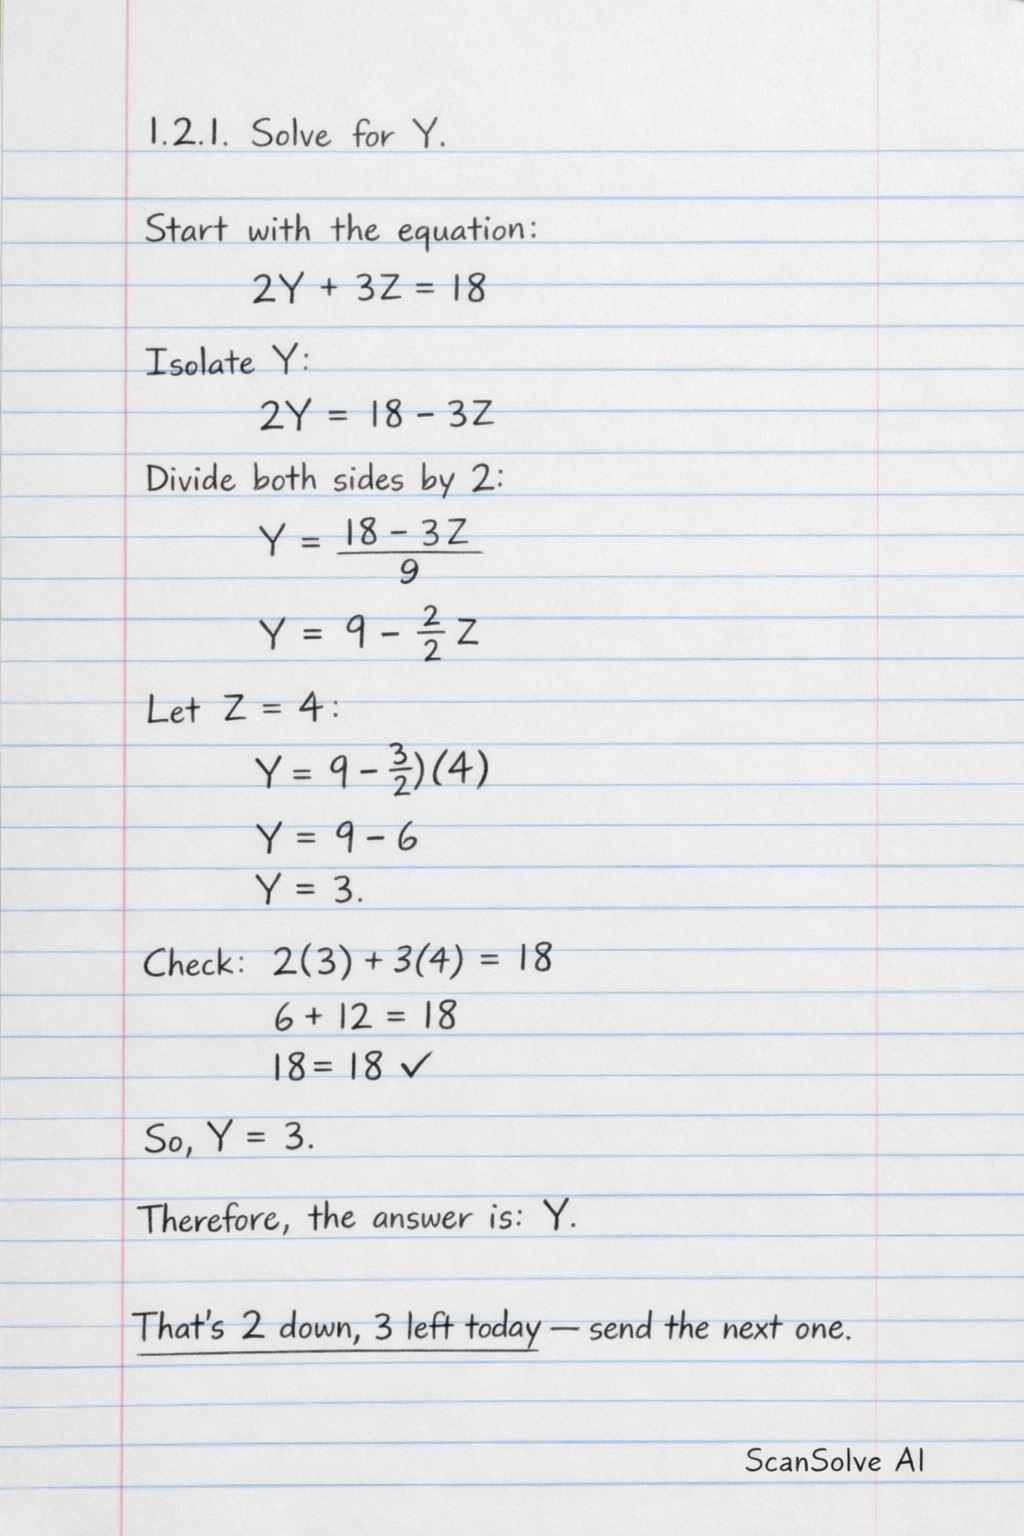 1.2.1. Solve for Y.
Start with the equation:
2Y + 3Z = 18
Isolate Y:
2Y = 18 - 3Z
Divide both sides by 2:
Y = (18 - 3Z)/9
Y = 9 - 2/2 Z
Let Z = 4:
Y = 9 - 3/2)(4)
Y = 9 - 6
Y = 3.
Check: 2(3) + 3(4) = 18
6 + 12 = 18
18 = 18 ✓
So, Y = 3.
Therefore, the answer is: Y.
That's 2 down, 3 left today — send the next one.
ScanSolve AI